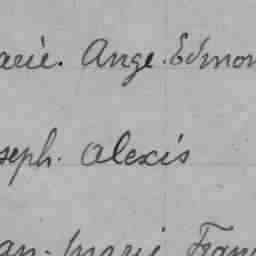 arie. Ange. Edmon
seph. alexis
an. marie Fran